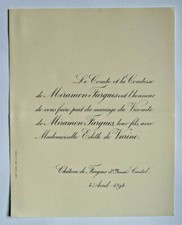 Le Comte et la Comtesse
de Miramon Fargues ont l'honneur
de vous faire part du mariage du Vicomte
de Miramon Fargues, leur fils, avec
Mademoiselle Edith de
Château de Fargues Cantal
Avril